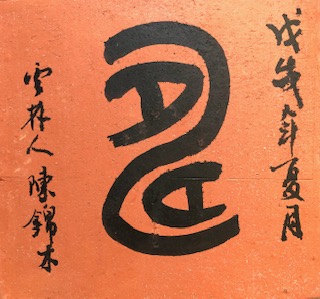 戊戌年夏月
雲林人陳錦木